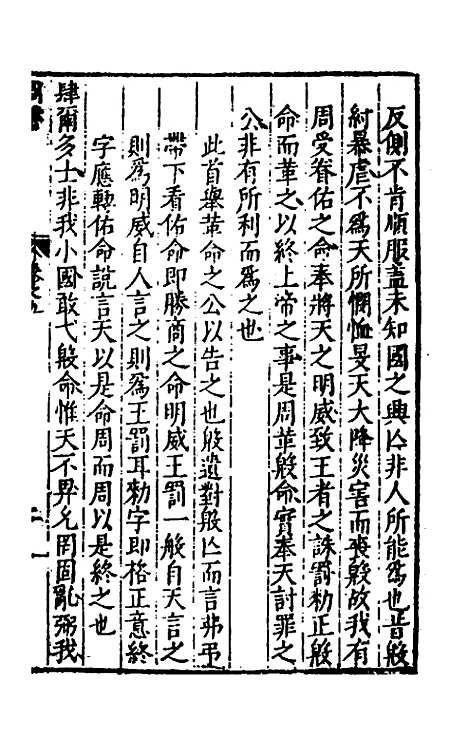 反側不肯順服蓋未知國之興亾非人所能爲也昔殷
紂暴虐不爲天所憫恤旻天大降災害而喪殷故我有
周受眷佑之命奉將天之明威致王者之誅罰勑正殷
命而革之以終上帝之事是周革殷命實奉天討罪之
公非有所利而爲之也
此首舉革命之公以告之也殷遺對殷亾而言弗弔
帶下看佑命即勝商之命明威王罰一般自天言之
則爲明威自人言之則爲王罰耳勑字即格正意終
字應轉佑命說言天以是命周而周以是終之也
肆爾多士非我小國敢弋殷命惟天不畀允罔固亂弼我
卷之五